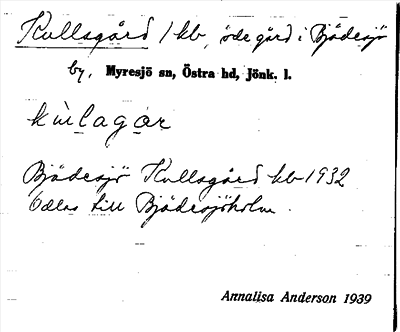 Kullsgård 1 kb, öde gård i Bjädesjö
by, Myresjö sn, Östra hd, Jönk. l.
kùlagar
Bjädesjö Kullsgård kb 1932
till Bjädesjöholm.
Annalisa Anderson 1939